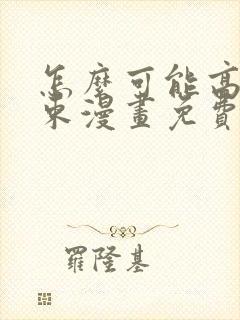 怎麼可能高
束漫畫免費
羅隆基